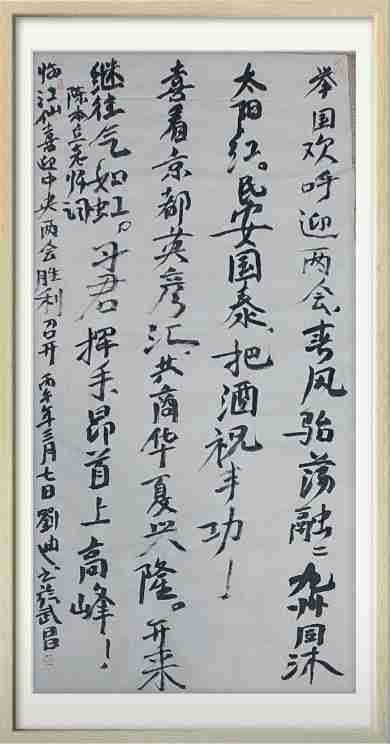 举国欢呼迎两会、春风骀荡融〻九州同沐
太阳红。民安国泰、把酒祝丰功！
喜看京都英彦汇、共商华夏兴隆。开来
继往气如虹。君挥手、昂首上高峰！
陈本老师词
临江仙喜迎中央两会胜利召开 丙午年三月七日 劉书於武昌